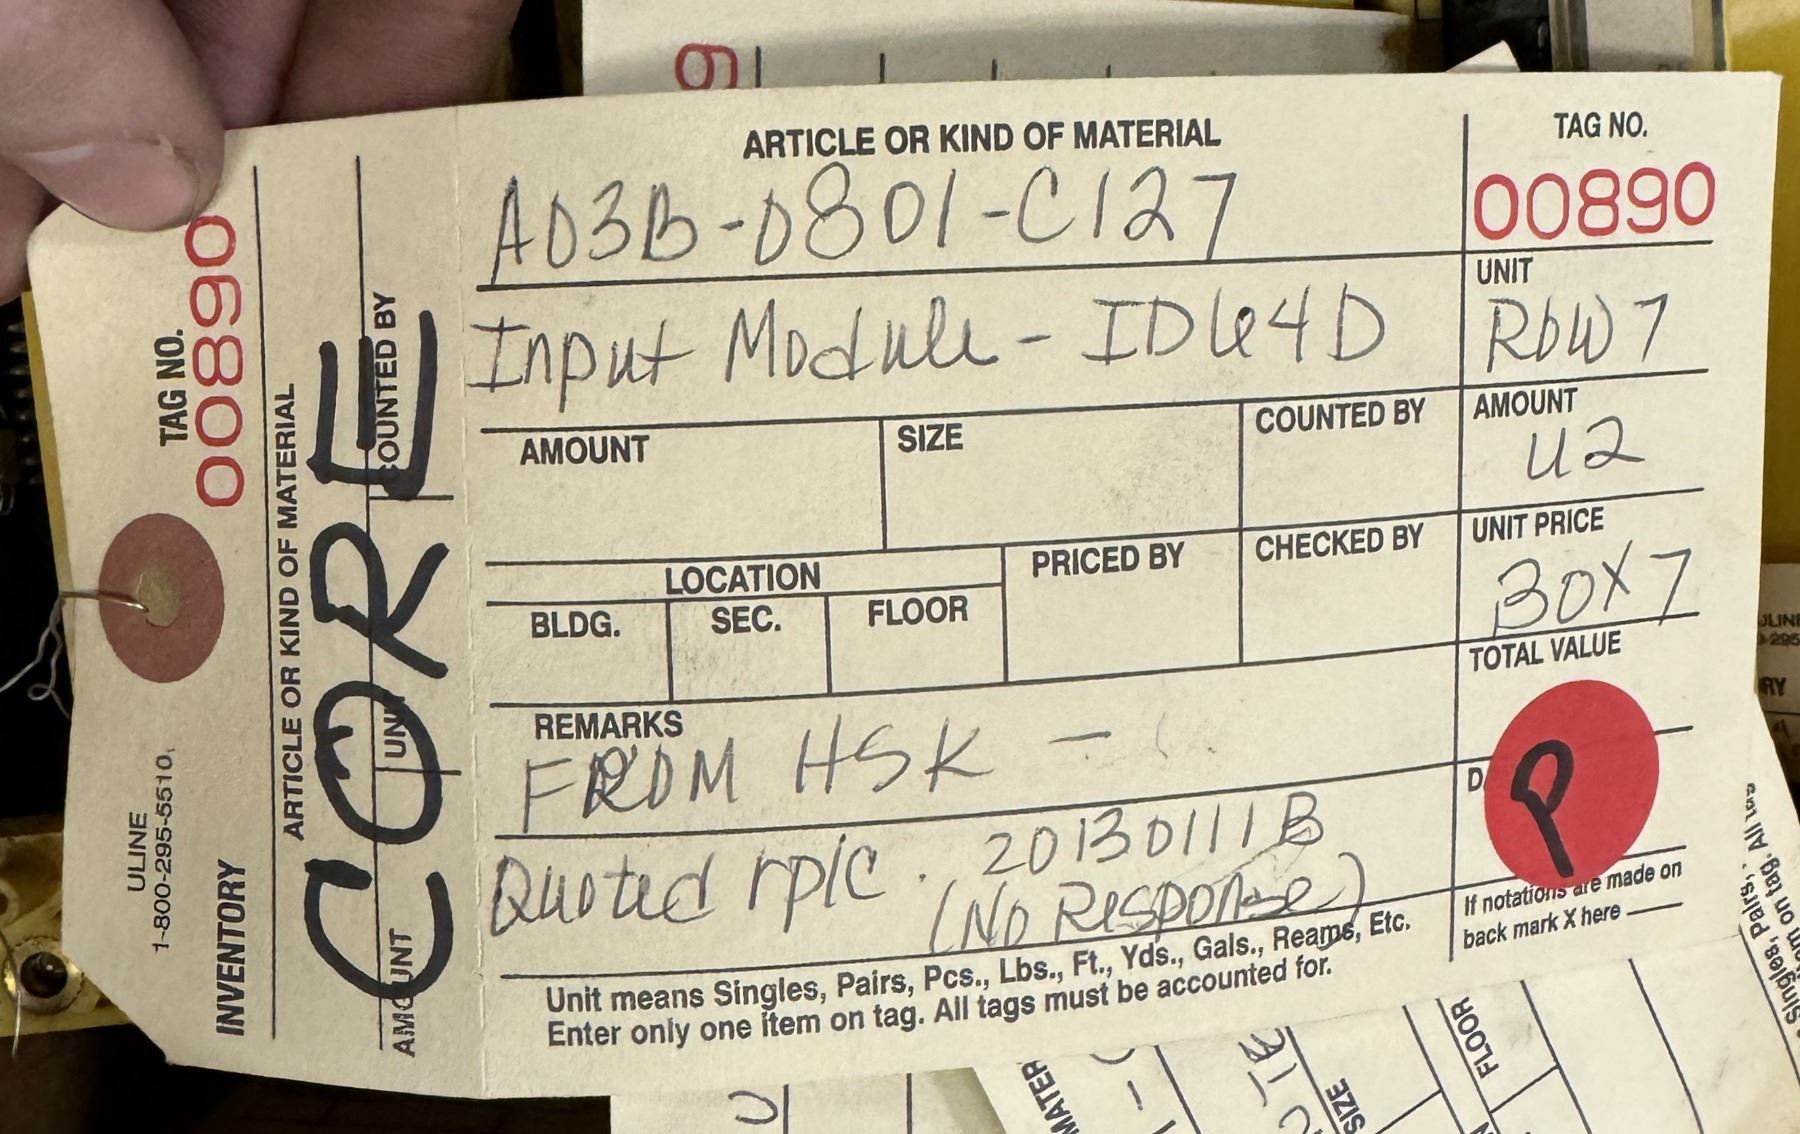 ARTICLE OR KIND OF MATERIAL
A03B-0801-C127
Input Module - ID64D
TAG NO.
00890
UNIT
ROW 7
AMOUNT
SIZE
COUNTED BY
AMOUNT
U2
LOCATION
BLDG.
SEC.
FLOOR
PRICED BY
CHECKED BY
UNIT PRICE
BOX 7
TOTAL VALUE
REMARKS
FROM HSK -
Quoted rplc. 20130111B
(No Response)
D
P
If notations are made on
back mark X here
Unit means Singles, Pairs, Pcs., Lbs., Ft., Yds., Gals., Reams, Etc.
Enter only one item on tag. All tags must be accounted for.
TAG NO.
00890
ARTICLE OR KIND OF MATERIAL
COUNTED BY
CORE
UNI
AMOUNT
ULINE
1-800-295-5510
INVENTORY
FLOOR
SIZE
MATER